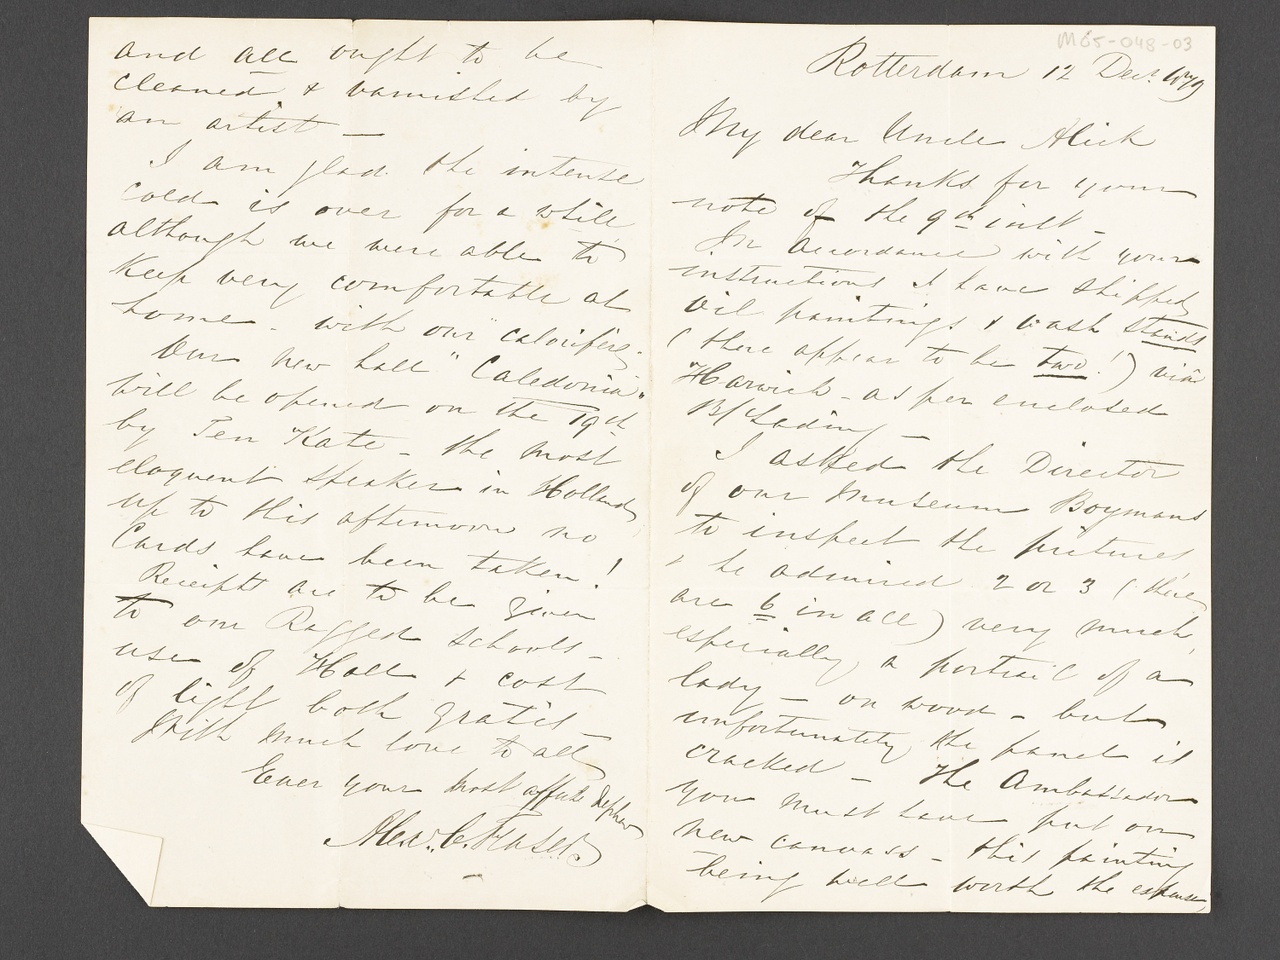 M65-048-03
Rotterdam 12 Decr. 1879
My dear Uncle Alick
Thanks for your
note of the 9th inst -
In accordance with your
instructions I have shipped
oil paintings & wash stands
(there appear to be two!) viâ
Harwich - as per enclosed
B/Lading -
I asked the Director
of our Museum Boymans
to inspect the pictures
& he admired 2 or 3 (there
are 6 in all) very much,
especially, a portrait of a
lady - on wood - but
unfortunately, the panel is
cracked - The Ambassador
you must have put on
new canvass - this painting
being well worth the expense,
and all ought to be
cleaned & varnished by
an artist -
I am glad the intense
cold is over for a while
although we were able to
keep very comfortable at
home - with our "calorifère".
Our new hall "Caledonia"
will be opened on the 19th
by Ten Kate - the most
eloquent speaker in Holland,
up to this afternoon no
Cards have been taken!
Receipts are to be given
to our Ragged schools -
use of Hall & cost
of light both gratis -
With much love to all
Ever your most affecte Nephew
Alexr. C. Fraser